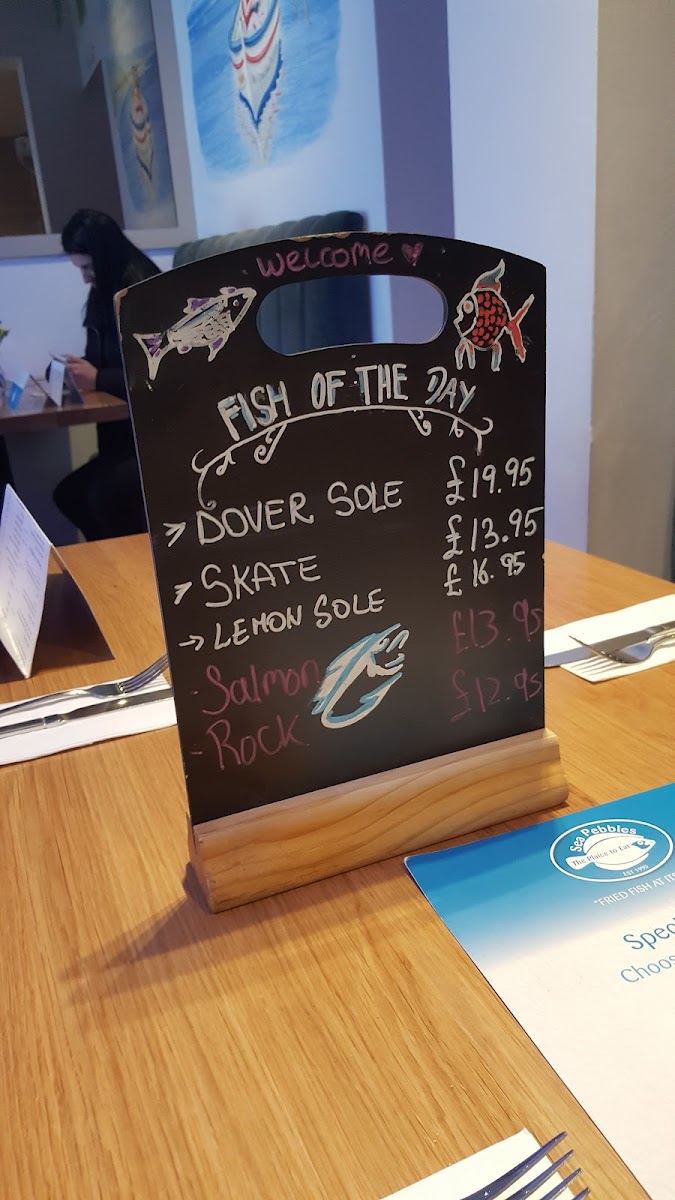 welcome
FISH OF THE DAY
DOVER SOLE £19.95
SKATE £13.95
LEMON SOLE £16.95
- Salmon £13.95
- Rock £12.95
Sea Pebbles
The Plaice to Eat
EST 1999
"FRIED FISH AT ITS
Spec
Choos